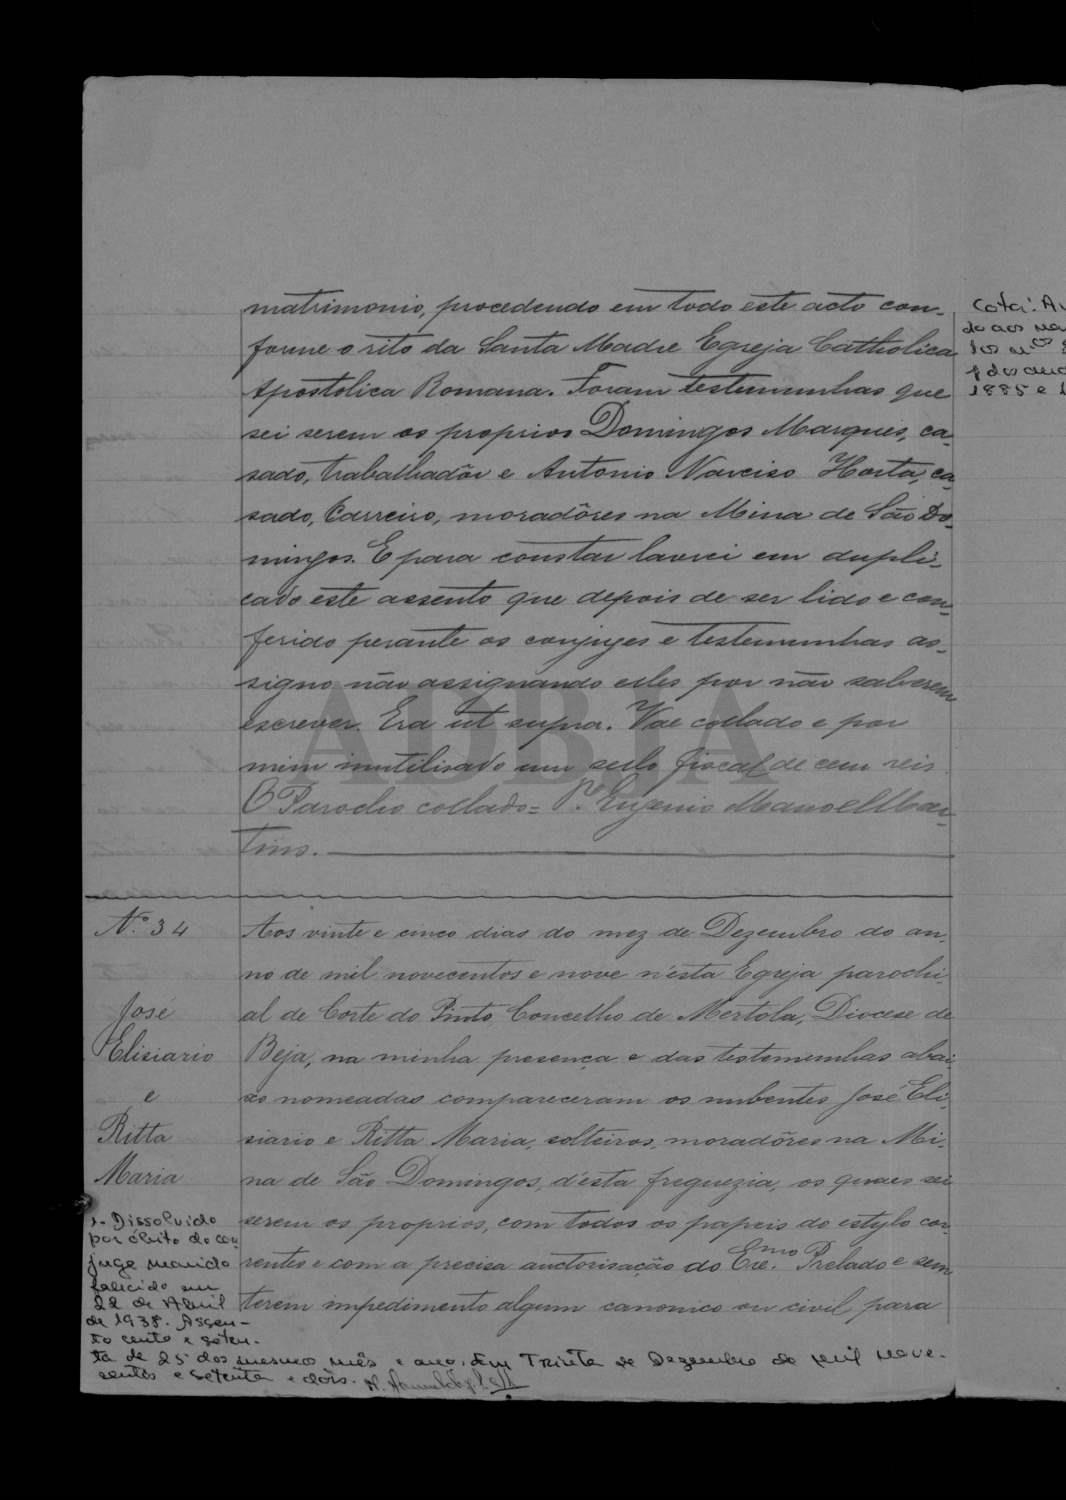 matrimonio, procedendo em todo este acto con-
forme o rito da Santa Madre Egreja Catholica
Apostolica Romana. Foram testemunhas que
sei serem os proprios Domingos Marques, ca-
sado, trabalhadôr e Antonio Narciso Horta, ca-
sado, Carreiro, moradôres na Mina de São Do-
mingos. E para constar lavrei em dupli-
cado este assento que depois de ser lido e con-
ferido perante os conjuges e testemunhas as-
signo não assignando elles por não saberem
escrever. Era ut supra. Vae collado e por
mim inutilisado um sello fiscal de cem reis
O Parocho collado = Pe. Eugenio Manoel Mar-
tins.
ADBJA
Nº 34
José
Elisiario
e
Ritta
Maria
Aos vinte e cinco dias do mez de Dezembro do an-
no de mil novecentos e nove n'esta Egreja parochi-
al de Corte do Pinto, Concelho de Mertola, Diocese de
Beja, na minha presença e das testemunhas abai-
xo nomeadas compareceram os nubentes José Eli-
siario e Ritta Maria, solteiros, moradôres na Mi-
na de São Domingos, d'esta freguezia, os quaes sei
serem os proprios, com todos os papeis do estylo cor-
rentes e com a precisa auctorisação do Exmo. Prelado e sem
terem impedimento algum canonico ou civil para
1- Dissolvido
por óbito do con-
juge marido
falecido em
22 de Abril
de 1938. Assen-
to cento e seten-
ta de 25 dos mesmos mês e ano. Em Trinta de Dezembro de mil nove-
centos e setenta e dois.
Cota:
do aos
1885 e